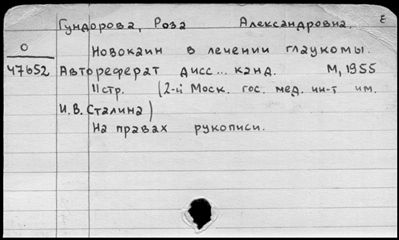 Гундорова, Роза Александровна. Е
О Новокаин в лечении глаукомы.
47652 Автореферат дисс... канд. М, 1955
11 стр. (2-й Моск. гос. мед. ин-т им.
И.В. Сталина)
На правах рукописи.